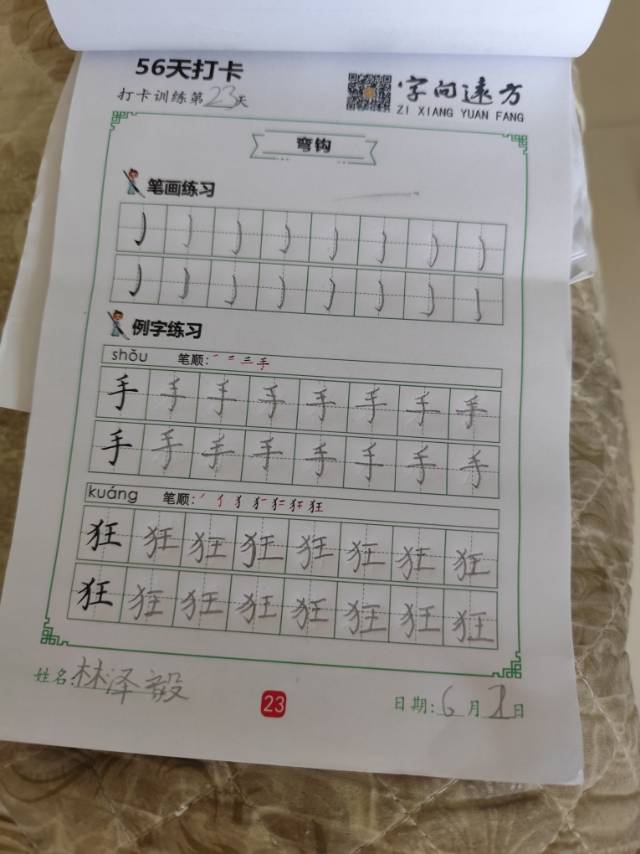 56天打卡
打卡训练第23天
字向远方
ZI XIANG YUAN FANG
弯钩
笔画练习
例字练习
shǒu 笔顺: 一 二 三 手
手 手 手 手 手 手 手 手
手 手 手 手 手 手 手 手
kuáng 笔顺: 狂
狂 狂 狂 狂 狂 狂 狂 狂
狂 狂 狂 狂 狂 狂 狂 狂
姓名:林泽毅
23
日期:6月 日